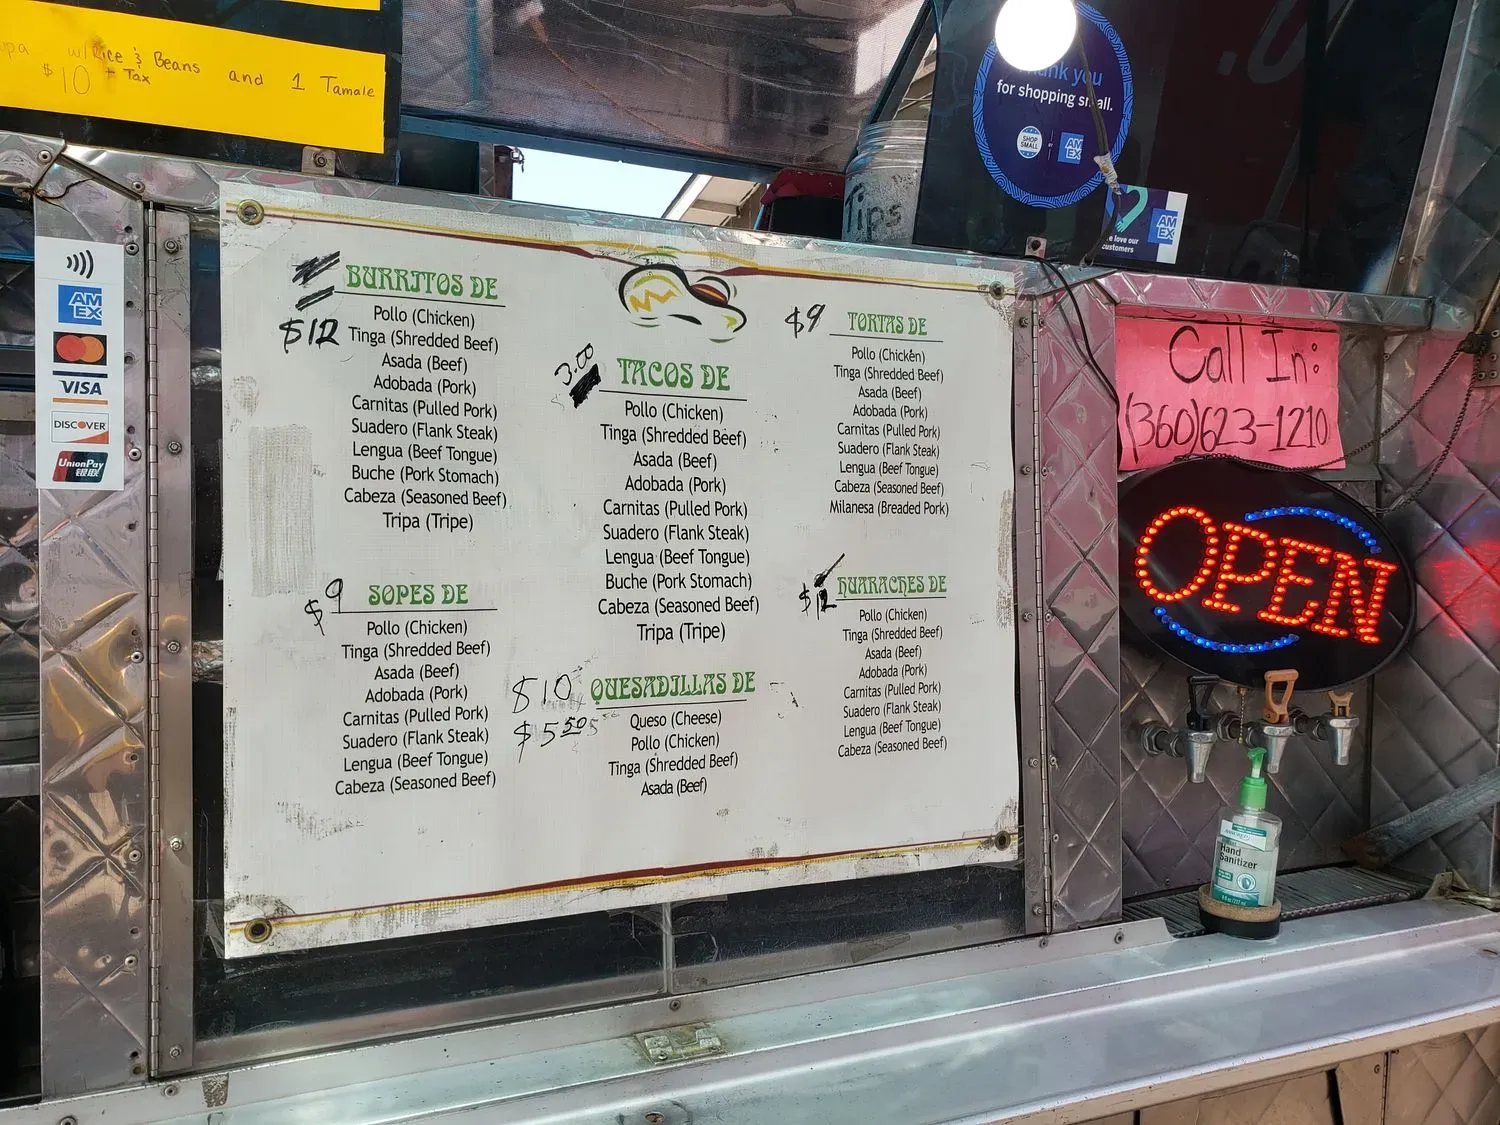 w/ Rice & Beans and 1 Tamale
$10 + Tax
Thank you
for shopping small.
SHOP
SMALL
AM
EX
Tips
AM
EX
love our
customers
AM
EX
VISA
DISCOVER
UnionPay
银联
BURRITOS DE
$12
Pollo (Chicken)
Tinga (Shredded Beef)
Asada (Beef)
Adobada (Pork)
Carnitas (Pulled Pork)
Suadero (Flank Steak)
Lengua (Beef Tongue)
Buche (Pork Stomach)
Cabeza (Seasoned Beef)
Tripa (Tripe)
$9 SOPES DE
Pollo (Chicken)
Tinga (Shredded Beef)
Asada (Beef)
Adobada (Pork)
Carnitas (Pulled Pork)
Suadero (Flank Steak)
Lengua (Beef Tongue)
Cabeza (Seasoned Beef)
3.00 TACOS DE
Pollo (Chicken)
Tinga (Shredded Beef)
Asada (Beef)
Adobada (Pork)
Carnitas (Pulled Pork)
Suadero (Flank Steak)
Lengua (Beef Tongue)
Buche (Pork Stomach)
Cabeza (Seasoned Beef)
Tripa (Tripe)
$10 QUESADILLAS DE
$5.50
Queso (Cheese)
Pollo (Chicken)
Tinga (Shredded Beef)
Asada (Beef)
$9 TORTAS DE
Pollo (Chicken)
Tinga (Shredded Beef)
Asada (Beef)
Adobada (Pork)
Carnitas (Pulled Pork)
Suadero (Flank Steak)
Lengua (Beef Tongue)
Cabeza (Seasoned Beef)
Milanesa (Breaded Pork)
$12 HUARACHES DE
Pollo (Chicken)
Tinga (Shredded Beef)
Asada (Beef)
Adobada (Pork)
Carnitas (Pulled Pork)
Suadero (Flank Steak)
Lengua (Beef Tongue)
Cabeza (Seasoned Beef)
Call In:
(360)623-1210
OPEN
Hand
Sanitizer